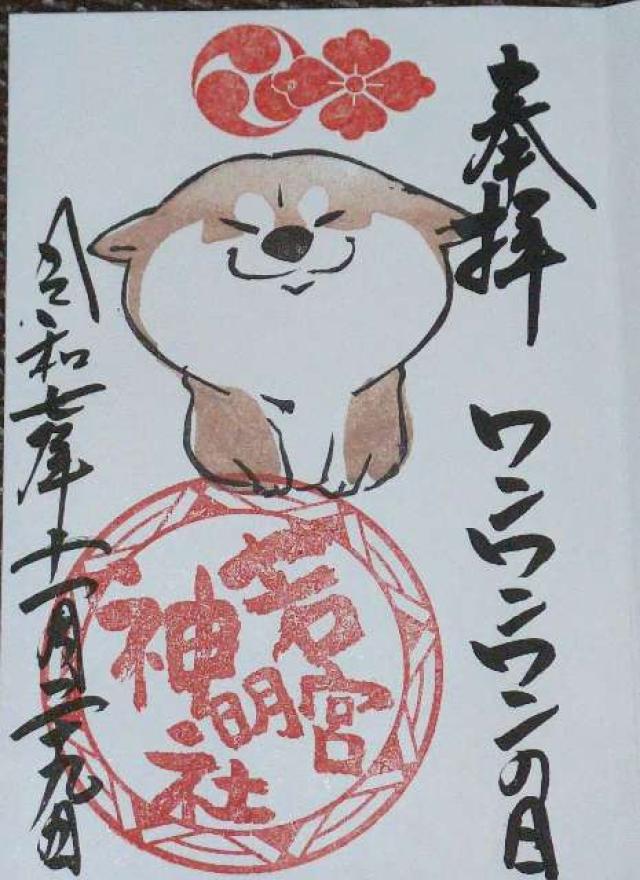 奉拝
ワンワンワンの日
若宮
神明社
令和七年十一月二十九日